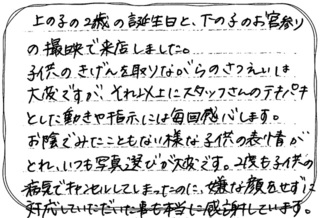 上の子の2歳の誕生日と、下の子のお宮参り
の撮映で来店しました。
子供のきげんを取りながらのさつえいは
大変ですが、それ以上にスタッフさんのテキパキ
とした動きや指示には毎回感心します。
お陰でみたこともない様な子供の表情が
とれ、いつも写真選びが大変です。2度も子供の
病気でキャンセルしてしまったのに、嫌な顔をせずに
対応していただいた事も本当に感謝しています。